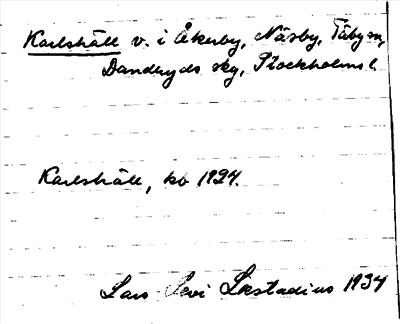 Karlshäll v. i Åkerby, Näsby, Täby sn,
Danderyds skg, Stockholms l.
Karlshäll, ko 1924.
Lars Levi Læstadius 1934